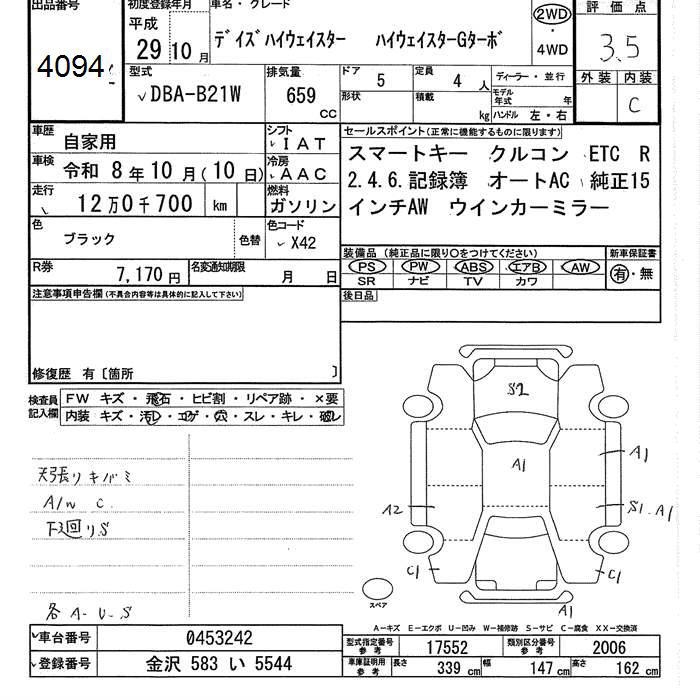 出品番号
4094
初度登録年月
平成
29年10月
車名・グレード
ﾃﾞｲｽﾞﾊｲｳｪｲｽﾀｰ ﾊｲｳｪｲｽﾀｰGﾀｰﾎﾞ
2WD
・
4WD
評価点
3.5
外装 内装
C
型式
DBA-B21W
排気量
659
CC
ドア 5
形状
定員 4 人
積載 kg
ディーラー・並行
モデル年式 年
ハンドル 左・右
車歴 自家用
シフト IAT
車検 令和 8年10月(10日)
冷房 AAC
走行 12万0千700 km
燃料 ガソリン
色 ブラック 色替
色コード X42
R券 7,170円
名変通知期限 月 日
セールスポイント(正常に機能するものに限ります)
スマートキー クルコン ETC R
2.4.6.記録簿 オートAC 純正15
インチAW ウインカーミラー
装備品(純正品に限り○をつけてください)
新車保証書
PS PW ABS エアB AW
有・無
SR ナビ TV カワ
後日品
注意事項申告欄(不具合内容等は具体的に記入して下さい)
修復歴 有〔箇所 〕
検査員記入欄
FW キズ・飛石・ヒビ割・リペア跡・×要
内装 キズ・汚レ・コゲ・穴・スレ・キレ・破レ
天張リキバミ
A/W C
下廻リS
各A-U-S
S2
A1
A1
A2
S1.A1
C1
C1
A1
スペア
A-キズ E-エクボ U-凹み W-補修跡 S-サビ C-腐食 XX-交換済
車台番号 0453242
登録番号 金沢 583 い 5544
型式指定番号 参考 17552
類別区分番号 参考 2006
車庫証明用 参考 長さ 339 cm 幅 147 cm 高さ 162 cm